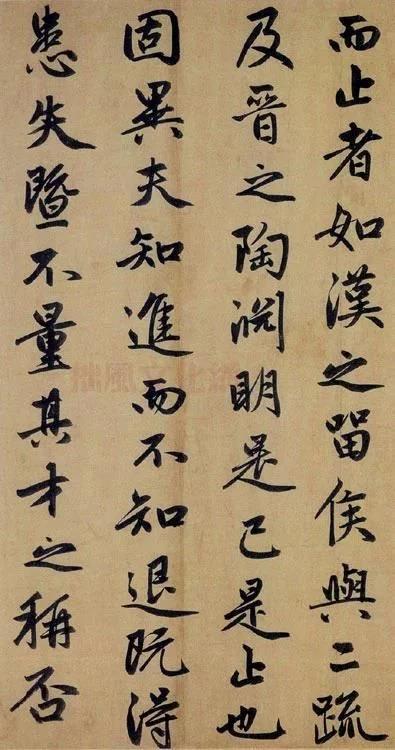 而止者如漢之留侯與二疏
及晉之陶淵明是已是止也
固異夫知進而不知退既得
患失暨不量其才之稱否
拙風文化網